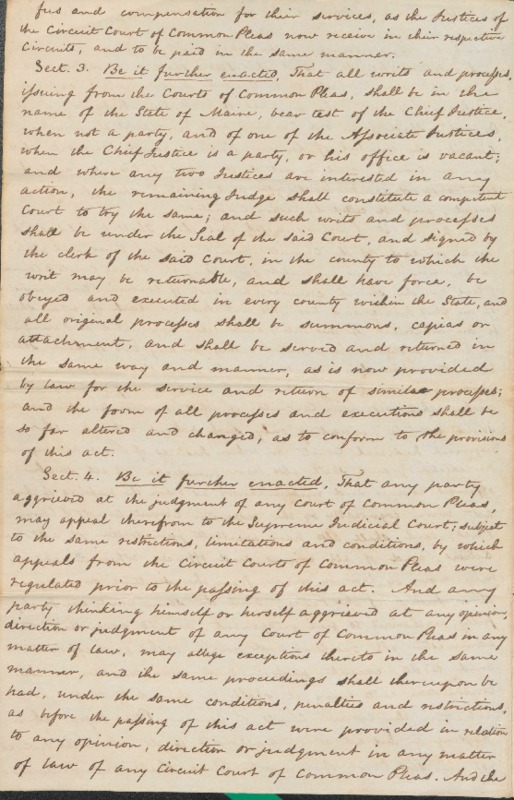 fees and compensation for their services, as the Justices of
the Circuit Court of Common Pleas now receive in their respective
Circuits, and to be paid in the same manner.
Sect. 3. Be it further enacted, That all writs and processes,
issuing from the Courts of Common Pleas, shall be in the
name of the State of Maine, bear test of the Chief Justice,
when not a party, and of one of the Associate Justices,
when the Chief Justice is a party, or his office is vacant;
and where any two Justices are interested in any
action, the remaining Judge shall constitute a competent
Court to try the same; and such writs and processes
shall be under the Seal of the said Court, and signed by
the clerk of the said Court, in the county to which the
writ may be returnable, and shall have force, be
obeyed and executed in every county within the State, and
all original processes shall be summons, capias or
attachment, and shall be served and returned in
the same way and manner, as is now provided
by law for the service and return of similar processes;
and the form of all processes and executions shall be
so far altered and changed, as to conform to the provisions
of this act.
Sect. 4. Be it further enacted, That any party
aggrieved at the judgment of any Court of Common Pleas,
may appeal therefrom to the Supreme Judicial Court; subject
to the same restrictions, limitations and conditions, by which
appeals from the Circuit Courts of Common Pleas were
regulated prior to the passing of this act. And any
party thinking himself or herself aggrieved at any opinion,
direction or judgment of any Court of Common Pleas in any
matter of law, may allege exceptions thereto in the same
manner, and the same proceedings shall thereupon be
had, under the same conditions, penalties and restrictions,
as before the passing of this act were provided in relation
to any opinion, direction or judgment in any matter
of law of any Circuit Court of Common Pleas. And the